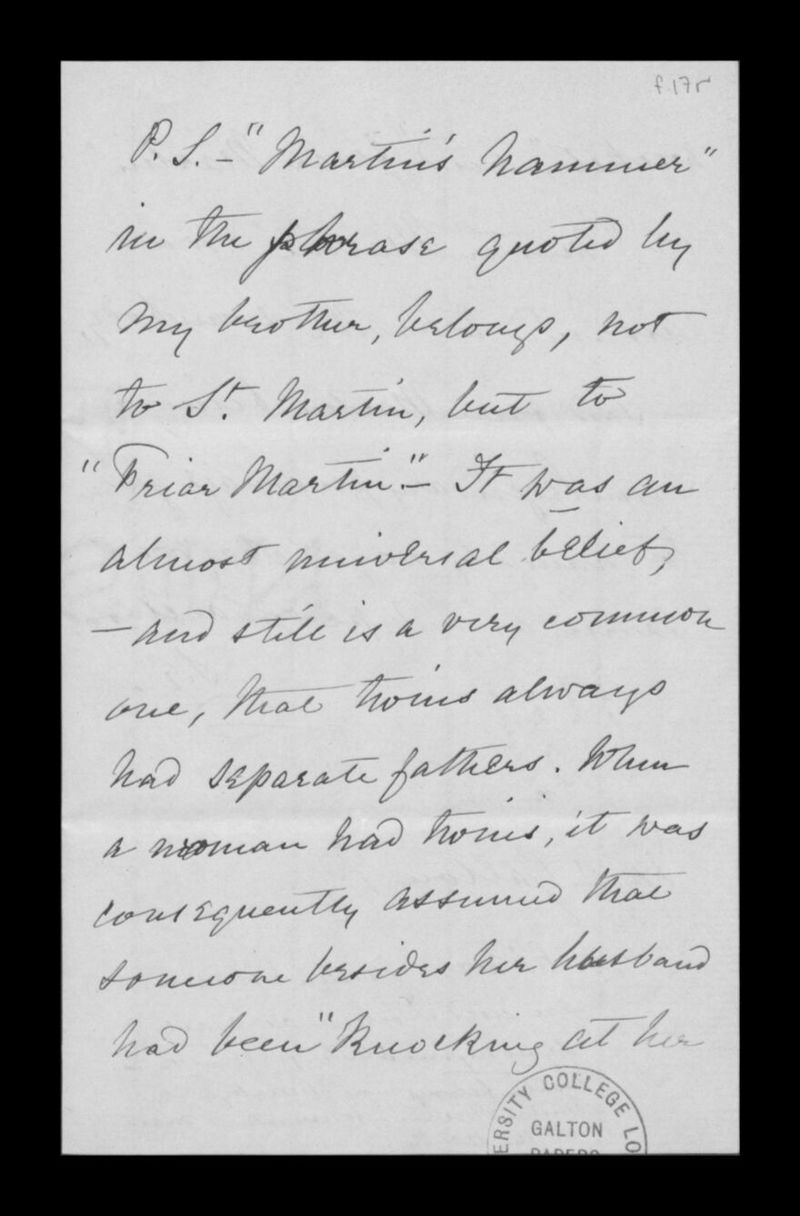 f.17r
P. S. – "Martin's hammer"
in the phrase quoted by
my brother, belongs, not
to St. Martin, but to
"Friar Martin." – It was an
almost universal belief,
– and still is a very common
one, that twins always
had separate fathers. When
a woman had twins, it was
consequently assumed that
someone besides her husband
had been "knocking at her
ERSITY COLLEGE LO
GALTON
PAPERS